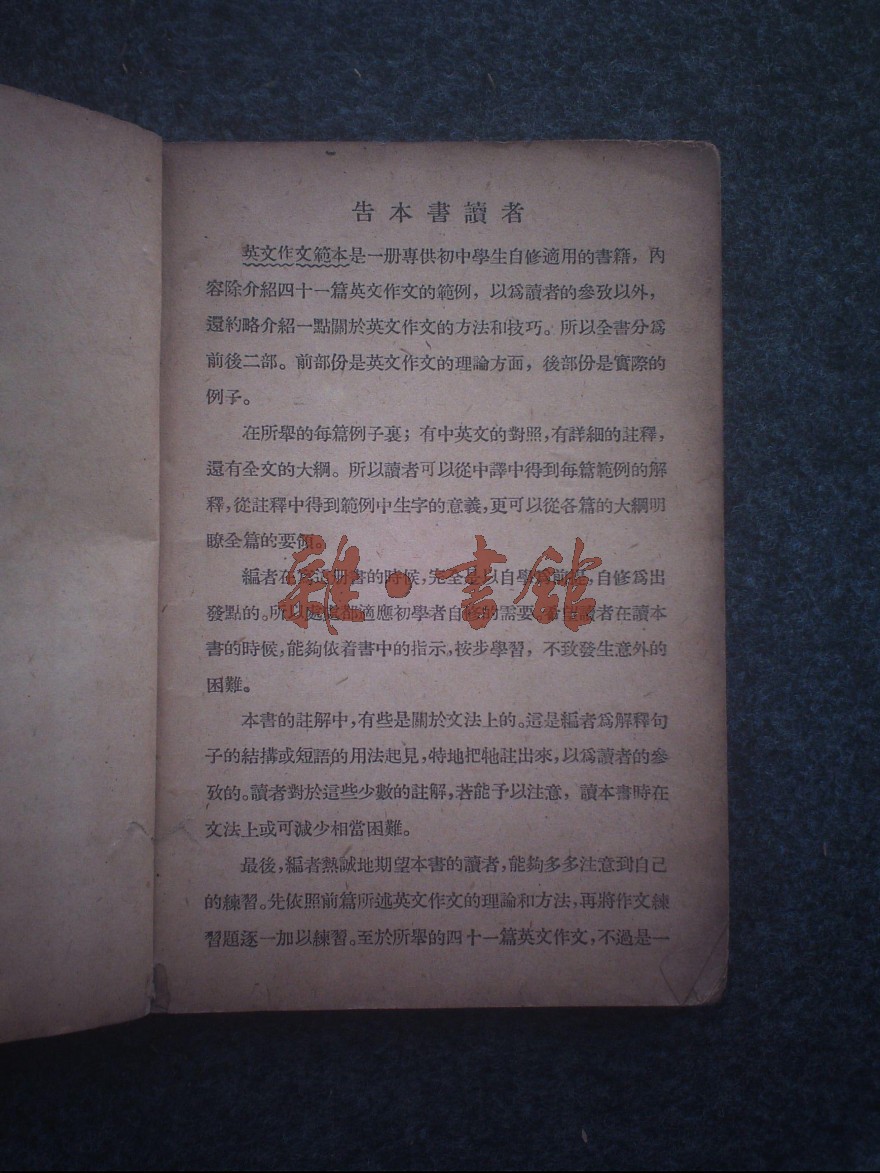 告本書讀者
英文作文範本是一册專供初中學生自修適用的書籍，內
容除介紹四十一篇英文作文的範例，以爲讀者的參攷以外，
還約略介紹一點關於英文作文的方法和技巧。所以全書分爲
前後二部。前部份是英文作文的理論方面，後部份是實際的
例子。
在所舉的每篇例子裏；有中英文的對照，有詳細的註釋，
還有全文的大綱。所以讀者可以從中譯中得到每篇範例的解
釋，從註釋中得到範例中生字的意義，更可以從各篇的大綱明
瞭全篇的要領。
雜·書館
編者在爲這册書的時候，完全是以自學爲前提，自修爲出
發點的。所以處處都適應初學者自修的需要，希望讀者在讀本
書的時候，能夠依着書中的指示，按步學習，不致發生意外的
困難。
本書的註解中，有些是關於文法上的。這是編者爲解釋句
子的結搆或短語的用法起見，特地把牠註出來，以爲讀者的參
攷的。讀者對於這些少數的註解，若能予以注意，讀本書時在
文法上或可減少相當困難。
最後，編者熱誠地期望本書的讀者，能夠多多注意到自己
的練習。先依照前篇所述英文作文的理論和方法，再將作文練
習題逐一加以練習。至於所舉的四十一篇英文作文，不過是一